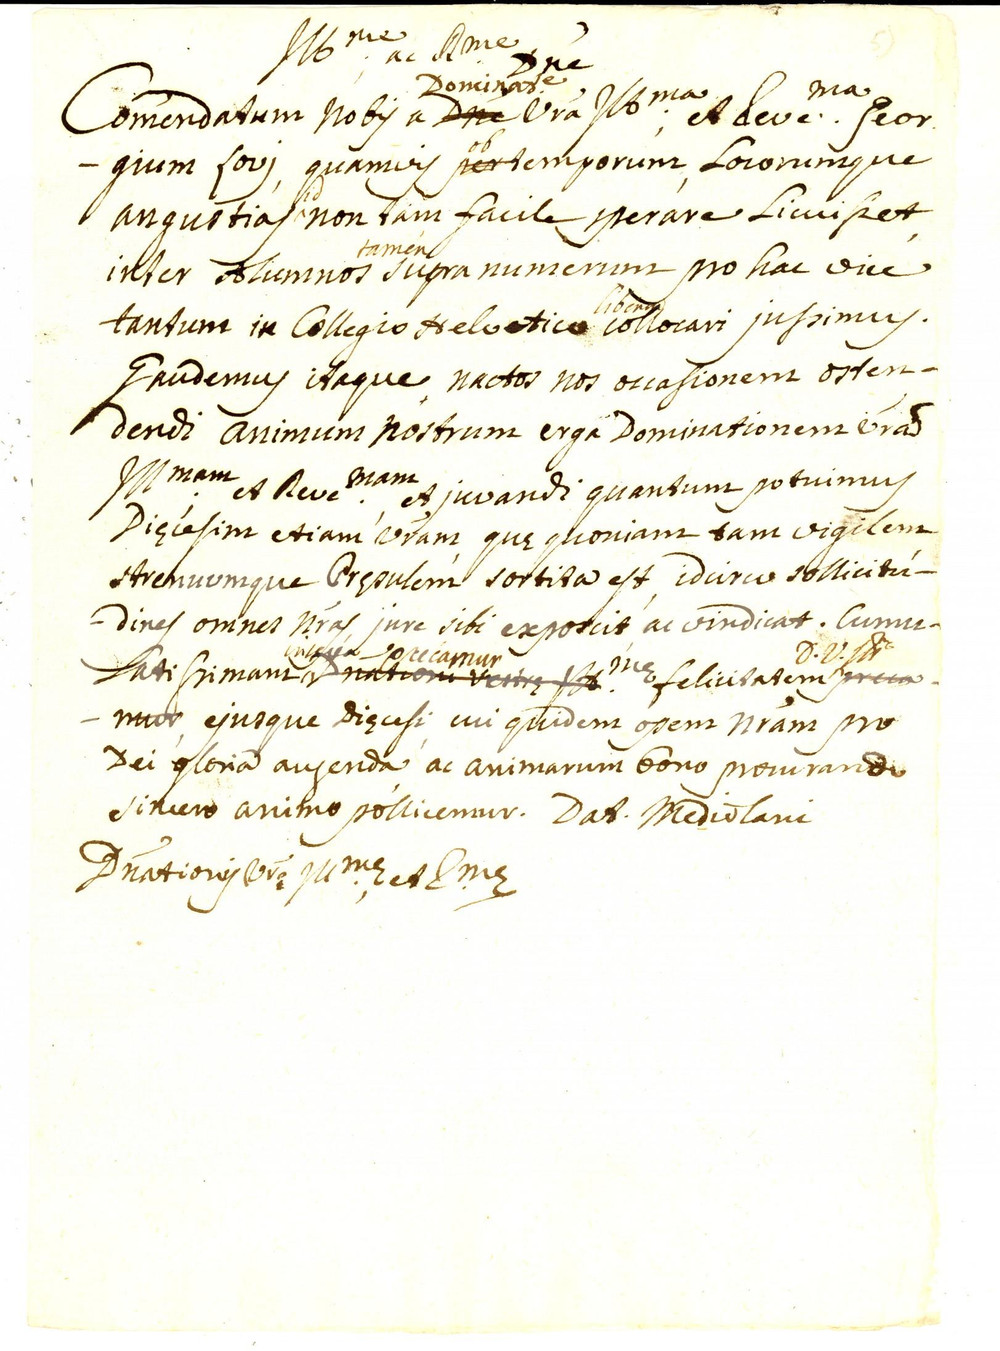 Ill.me ac R.me Dne
Comendatum Nobis a Dominate Vrâ Ill.ma et Reve.ma Geor
-gium Lovj, quamvis ob temporum, Locorumque
angustias id non tam facile sperare Licuisset,
inter Alumnos tamen supra numerum pro hac vice
tantum in Collegio Helvetico libenter collocari jussimus.
Gaudemus itaque, nactos nos occasionem osten-
dendi animum nostrum erga Dominationem Vrãm
Ill.mam et Reve.mam et juvandi quantum potuimus
Dięcesim etiam Vrãm, quę quoniam tam vigilem
strenuumque Pręsulem sortita est, idcirco sollicitu-
-dines omnes Nrãs jure sibi exposcit ac vindicat. Cumu-
Latissimam interea precamur felicitatem D. V. Ill.
ejusque Dięcesi, cui quidem opem Nrãm pro
Dei gloria augenda ac animarum bono procurando
sincero animo pollicemur. Dat. Mediolani
Dnationis Vrę Ill.mę et R.mę